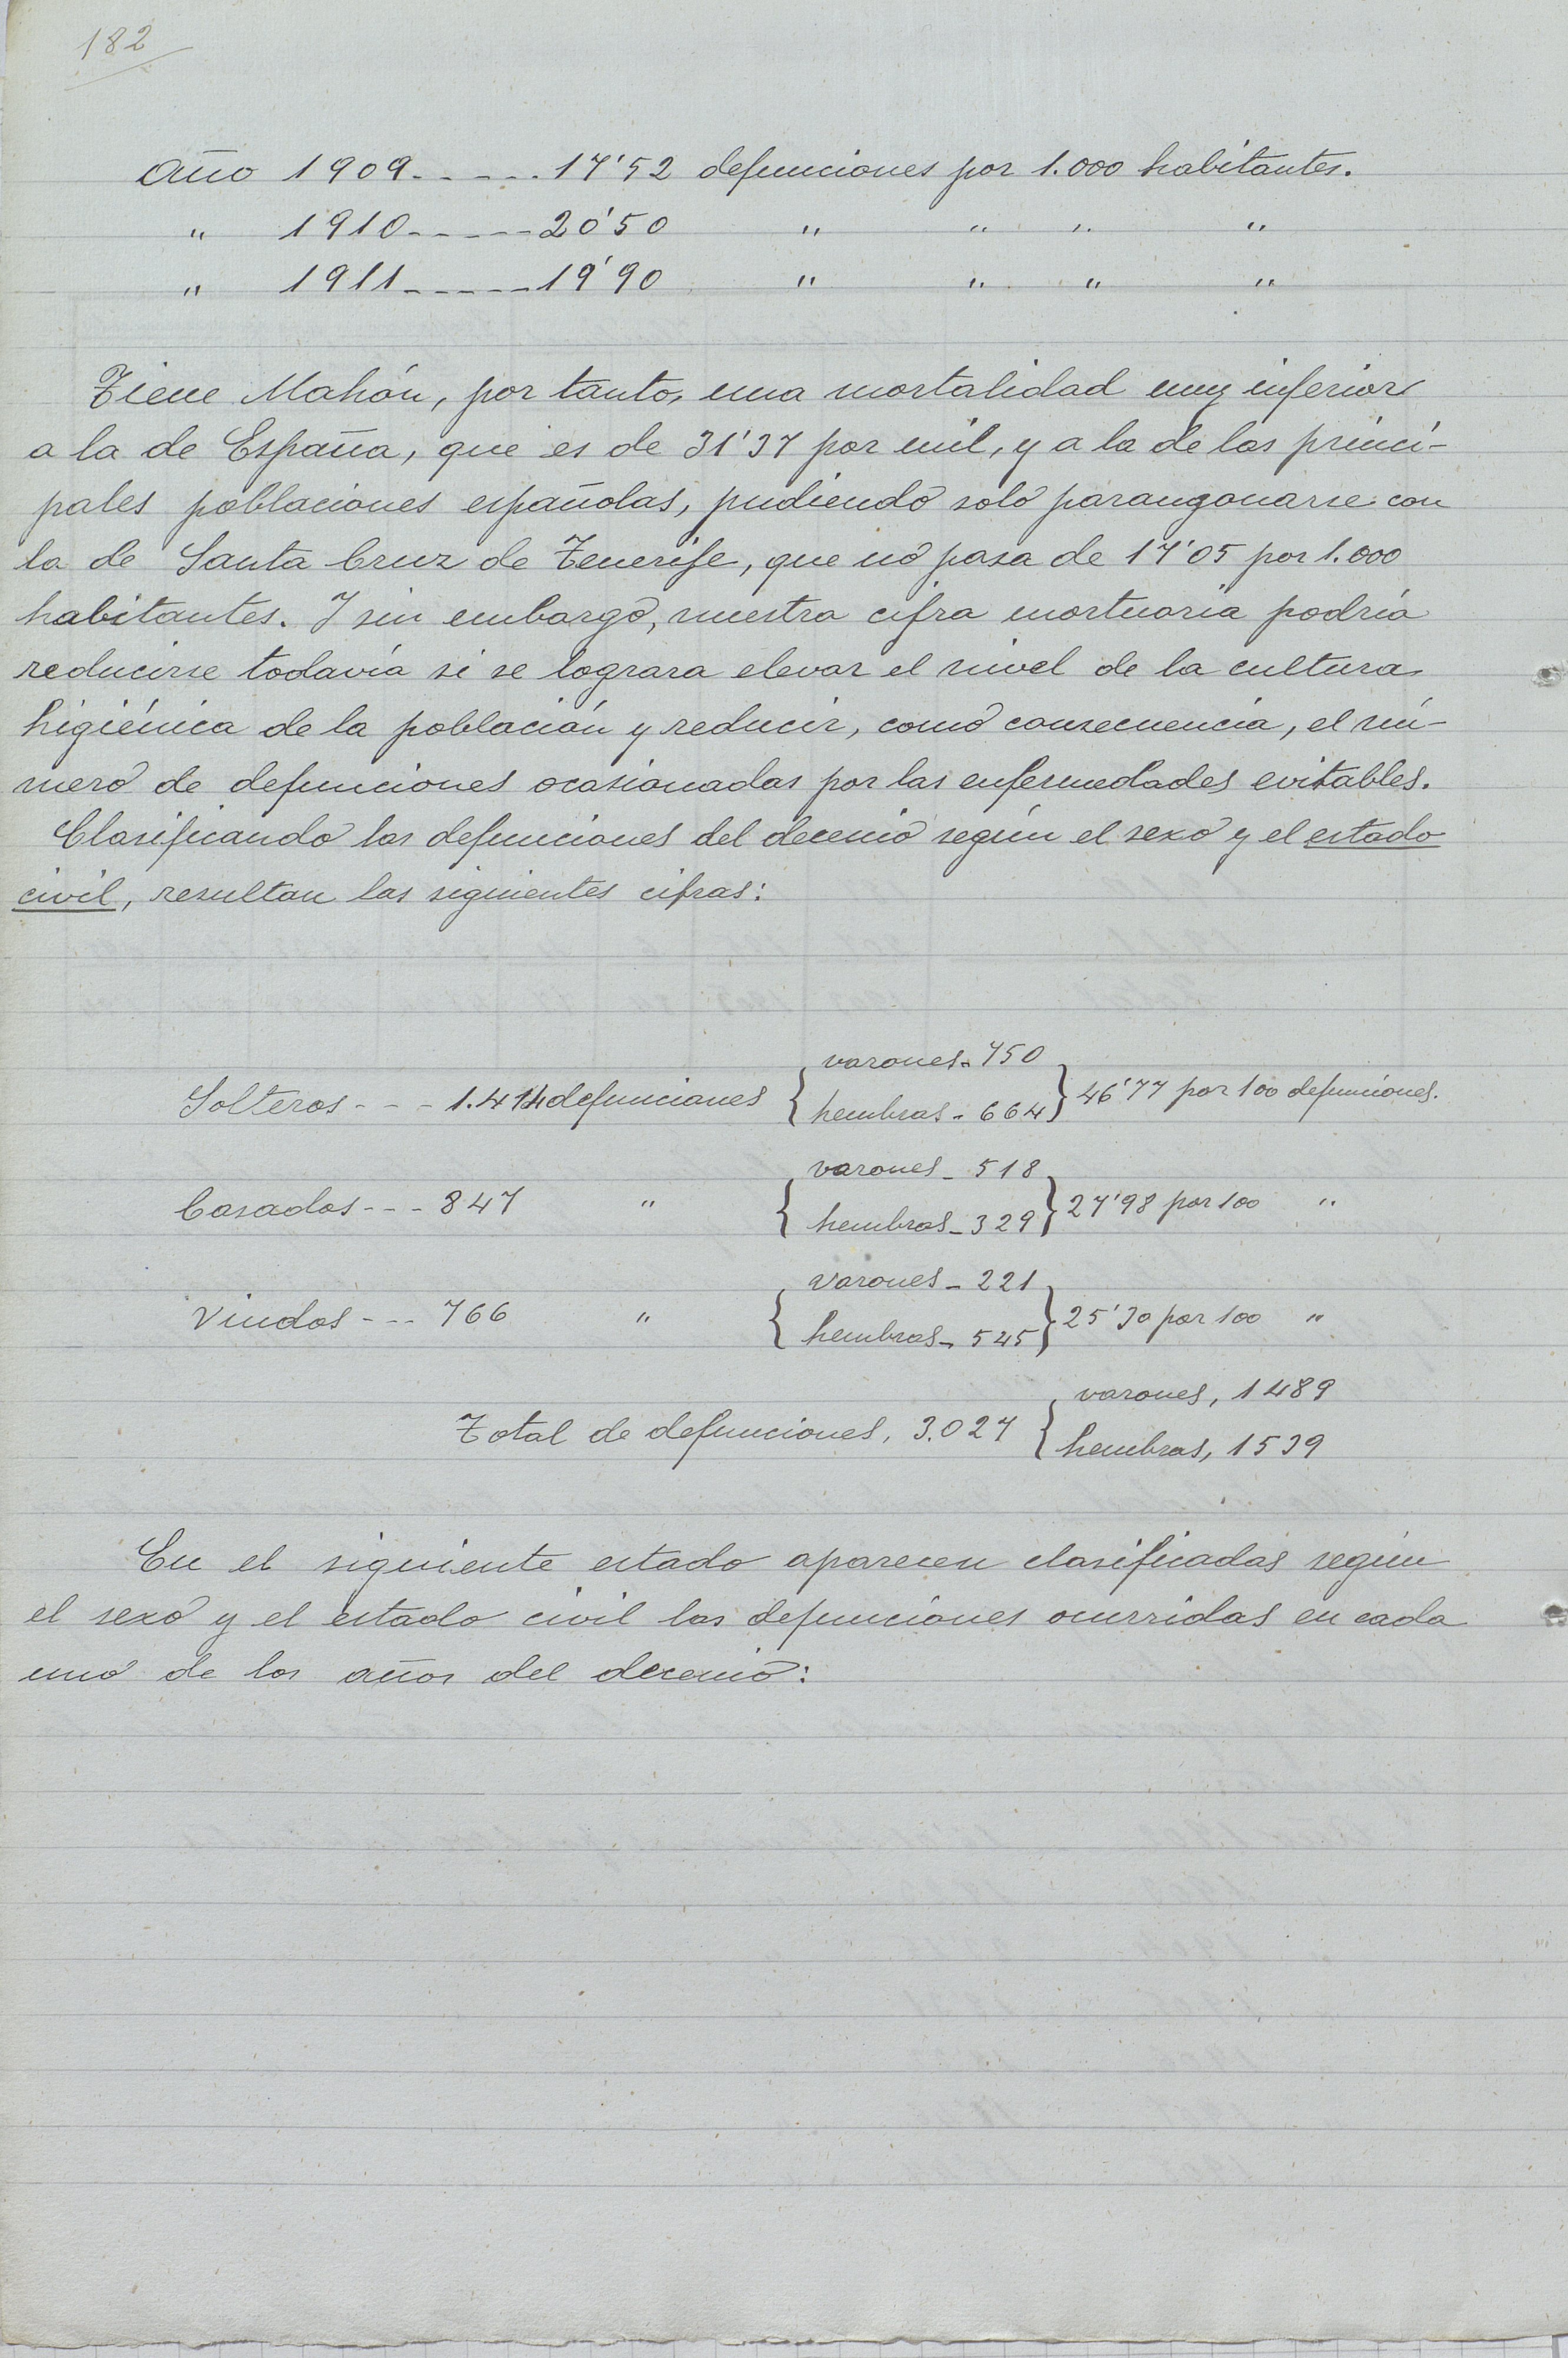 182
Año 1909------17'52 defunciones por 1.000 habitantes.
" 1910------20'50 " " " "
" 1911------19'90 " " " "
Tiene Mahón, por tanto, una mortalidad muy inferior
a la de España, que es de 31'37 por mil, y a la de las princi-
pales poblaciones españolas, pudiendo solo parangonarse con
la de Santa Cruz de Tenerife, que no pasa de 17'05 por 1.000
habitantes. Y sin embargo, nuestra cifra mortuoria podría
reducirse todavía si se lograra elevar el nivel de la cultura
higiénica de la población y reducir, como consecuencia, el nú-
mero de defunciones ocasionadas por las enfermedades evitables.
Clasificando las defunciones del decenio según el sexo y el estado
civil, resultan las siguientes cifras:
varones - 750
Solteros - - - 1.414 defunciones { } 46'77 por 100 defunciones.
hembras - 664
varones - 518
Casados - - - 847 " { } 27'98 por 100 "
hembras - 329
varones - 221
Viudos - - - 766 " { } 25'30 por 100 "
hembras - 545
varones, 1489
Total de defunciones, 3.027 {
hembras, 1539
En el siguiente estado aparecen clasificadas según
el sexo y el estado civil las defunciones ocurridas en cada
uno de los años del decenio: